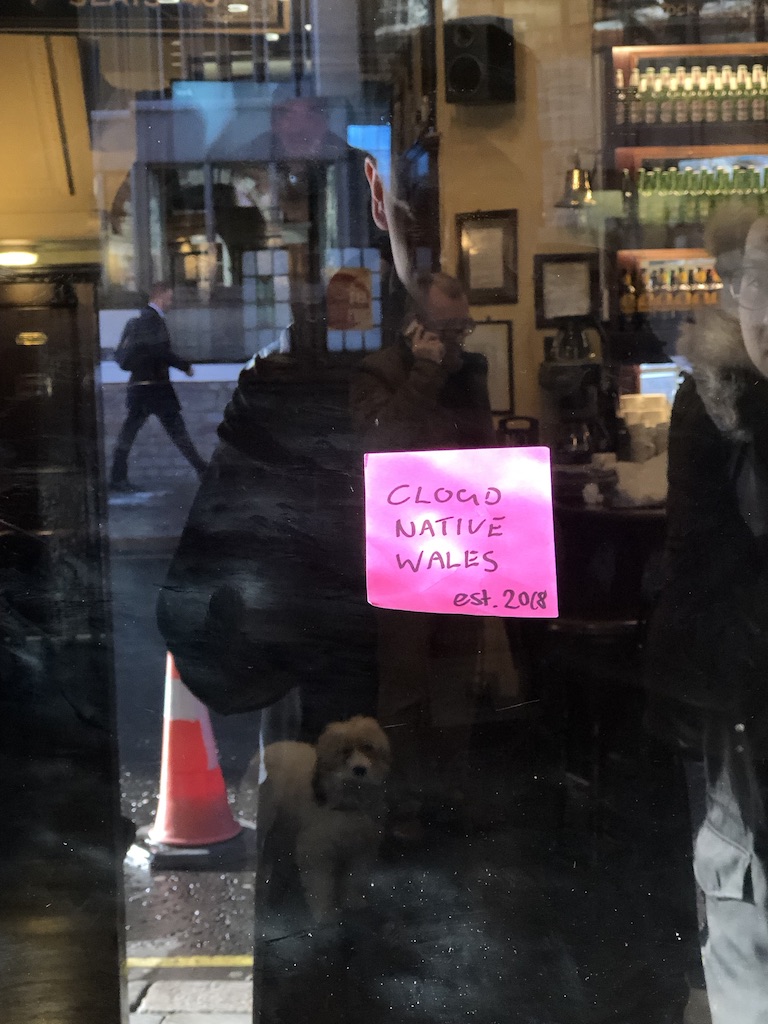 CLOUD
NATIVE
WALES
est. 2018